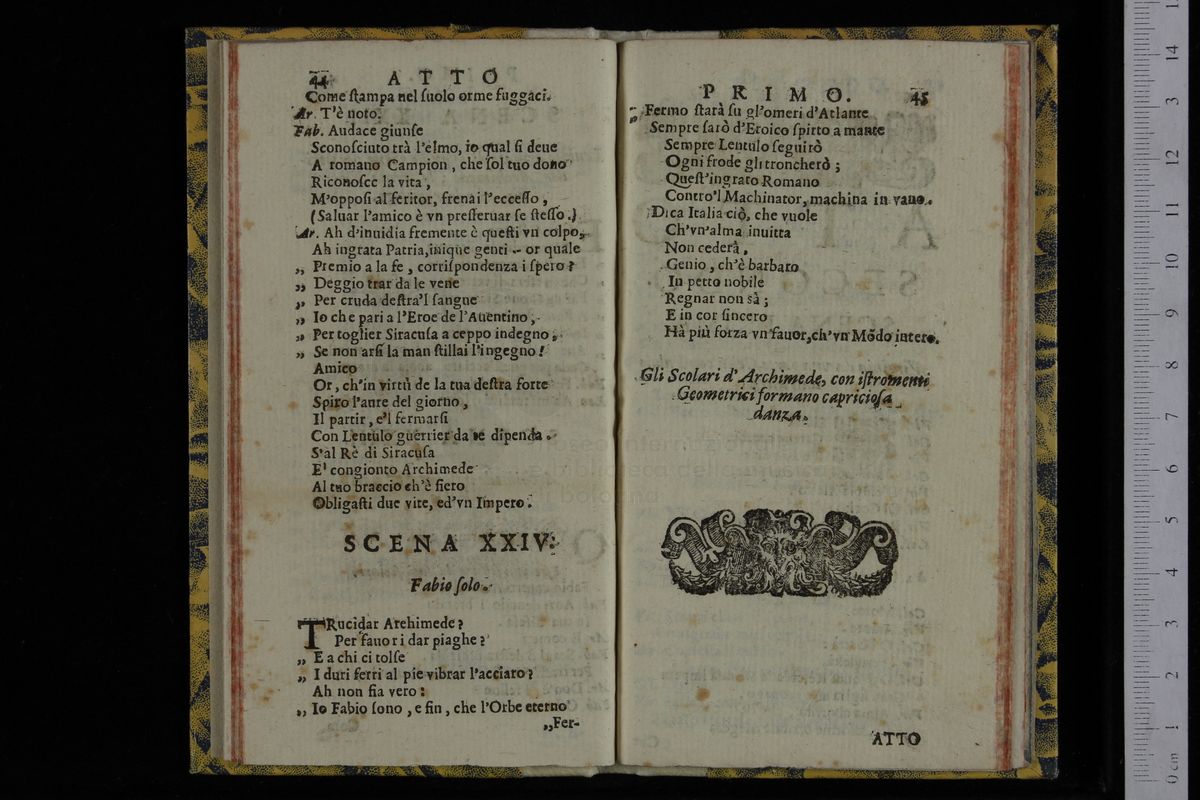 44 ATTO
Come ſtampa nel ſuolo orme fuggaci.
Ar. T'è noto.
Fab. Audace giunſe
Sconoſciuto trà l'elmo, io qual ſi deue
A romano Campion, che ſol tuo dono
Riconoſce la vita,
M'oppoſi al feritor, frenai l'ecceſſo,
(Saluar l'amico è vn preſeruar ſe ſteſſo.)
Ar. Ah d'inuidia fremente è queſti vn colpo,
Ah ingrata Patria, inique genti. or quale
„ Premio a la fe, corriſpondenza i ſpero?
„ Deggio trar da le vene
„ Per cruda deſtra'l ſangue
„ Io che pari a l'Eroe de l'Auentino,
„ Per toglier Siracuſa a ceppo indegno,
„ Se non arſi la man ſtillai l'ingegno!
Amico
Or, ch'in virtù de la tua deſtra forte
Spiro l'aure del giorno,
Il partir, e'l fermarſi
Con Lentulo guerrier da te dipenda.
S'al Rè di Siracuſa
E' congionto Archimede
Al tuo braccio ch'è fiero
Obligaſti due vite, ed'vn Impero.
SCENA XXIV.
Fabio ſolo.
TRucidar Archimede?
Per fauori dar piaghe?
„ E a chi ci tolſe
„ I duri ferri al pie vibrar l'acciaro?
Ah non fia vero:
„ Io Fabio ſono, e fin, che l'Orbe eterno
„Fer-
PRIMO. 45
„ Fermo ſtarà ſu gl'omeri d'Atlante
Sempre ſarò d'Eroico ſpirto amante
Sempre Lentulo ſeguirò
Ogni frode gli troncherò;
Queſt'ingrato Romano
Contro'l Machinator, machina in vano.
Dica Italia ciò, che vuole
Ch'vn'alma inuitta
Non cederà,
Genio, ch'è barbaro
In petto nobile
Regnar non sà;
E in cor ſincero
Hà più forza vn fauor, ch'vn Mõdo intero.
Gli Scolari d'Archimede, con iſtromenti
Geometrici formano caprícioſa
danza.
ATTO
0 cm 1 2 3 4 5 6 7 8 9 10 11 12 3 14